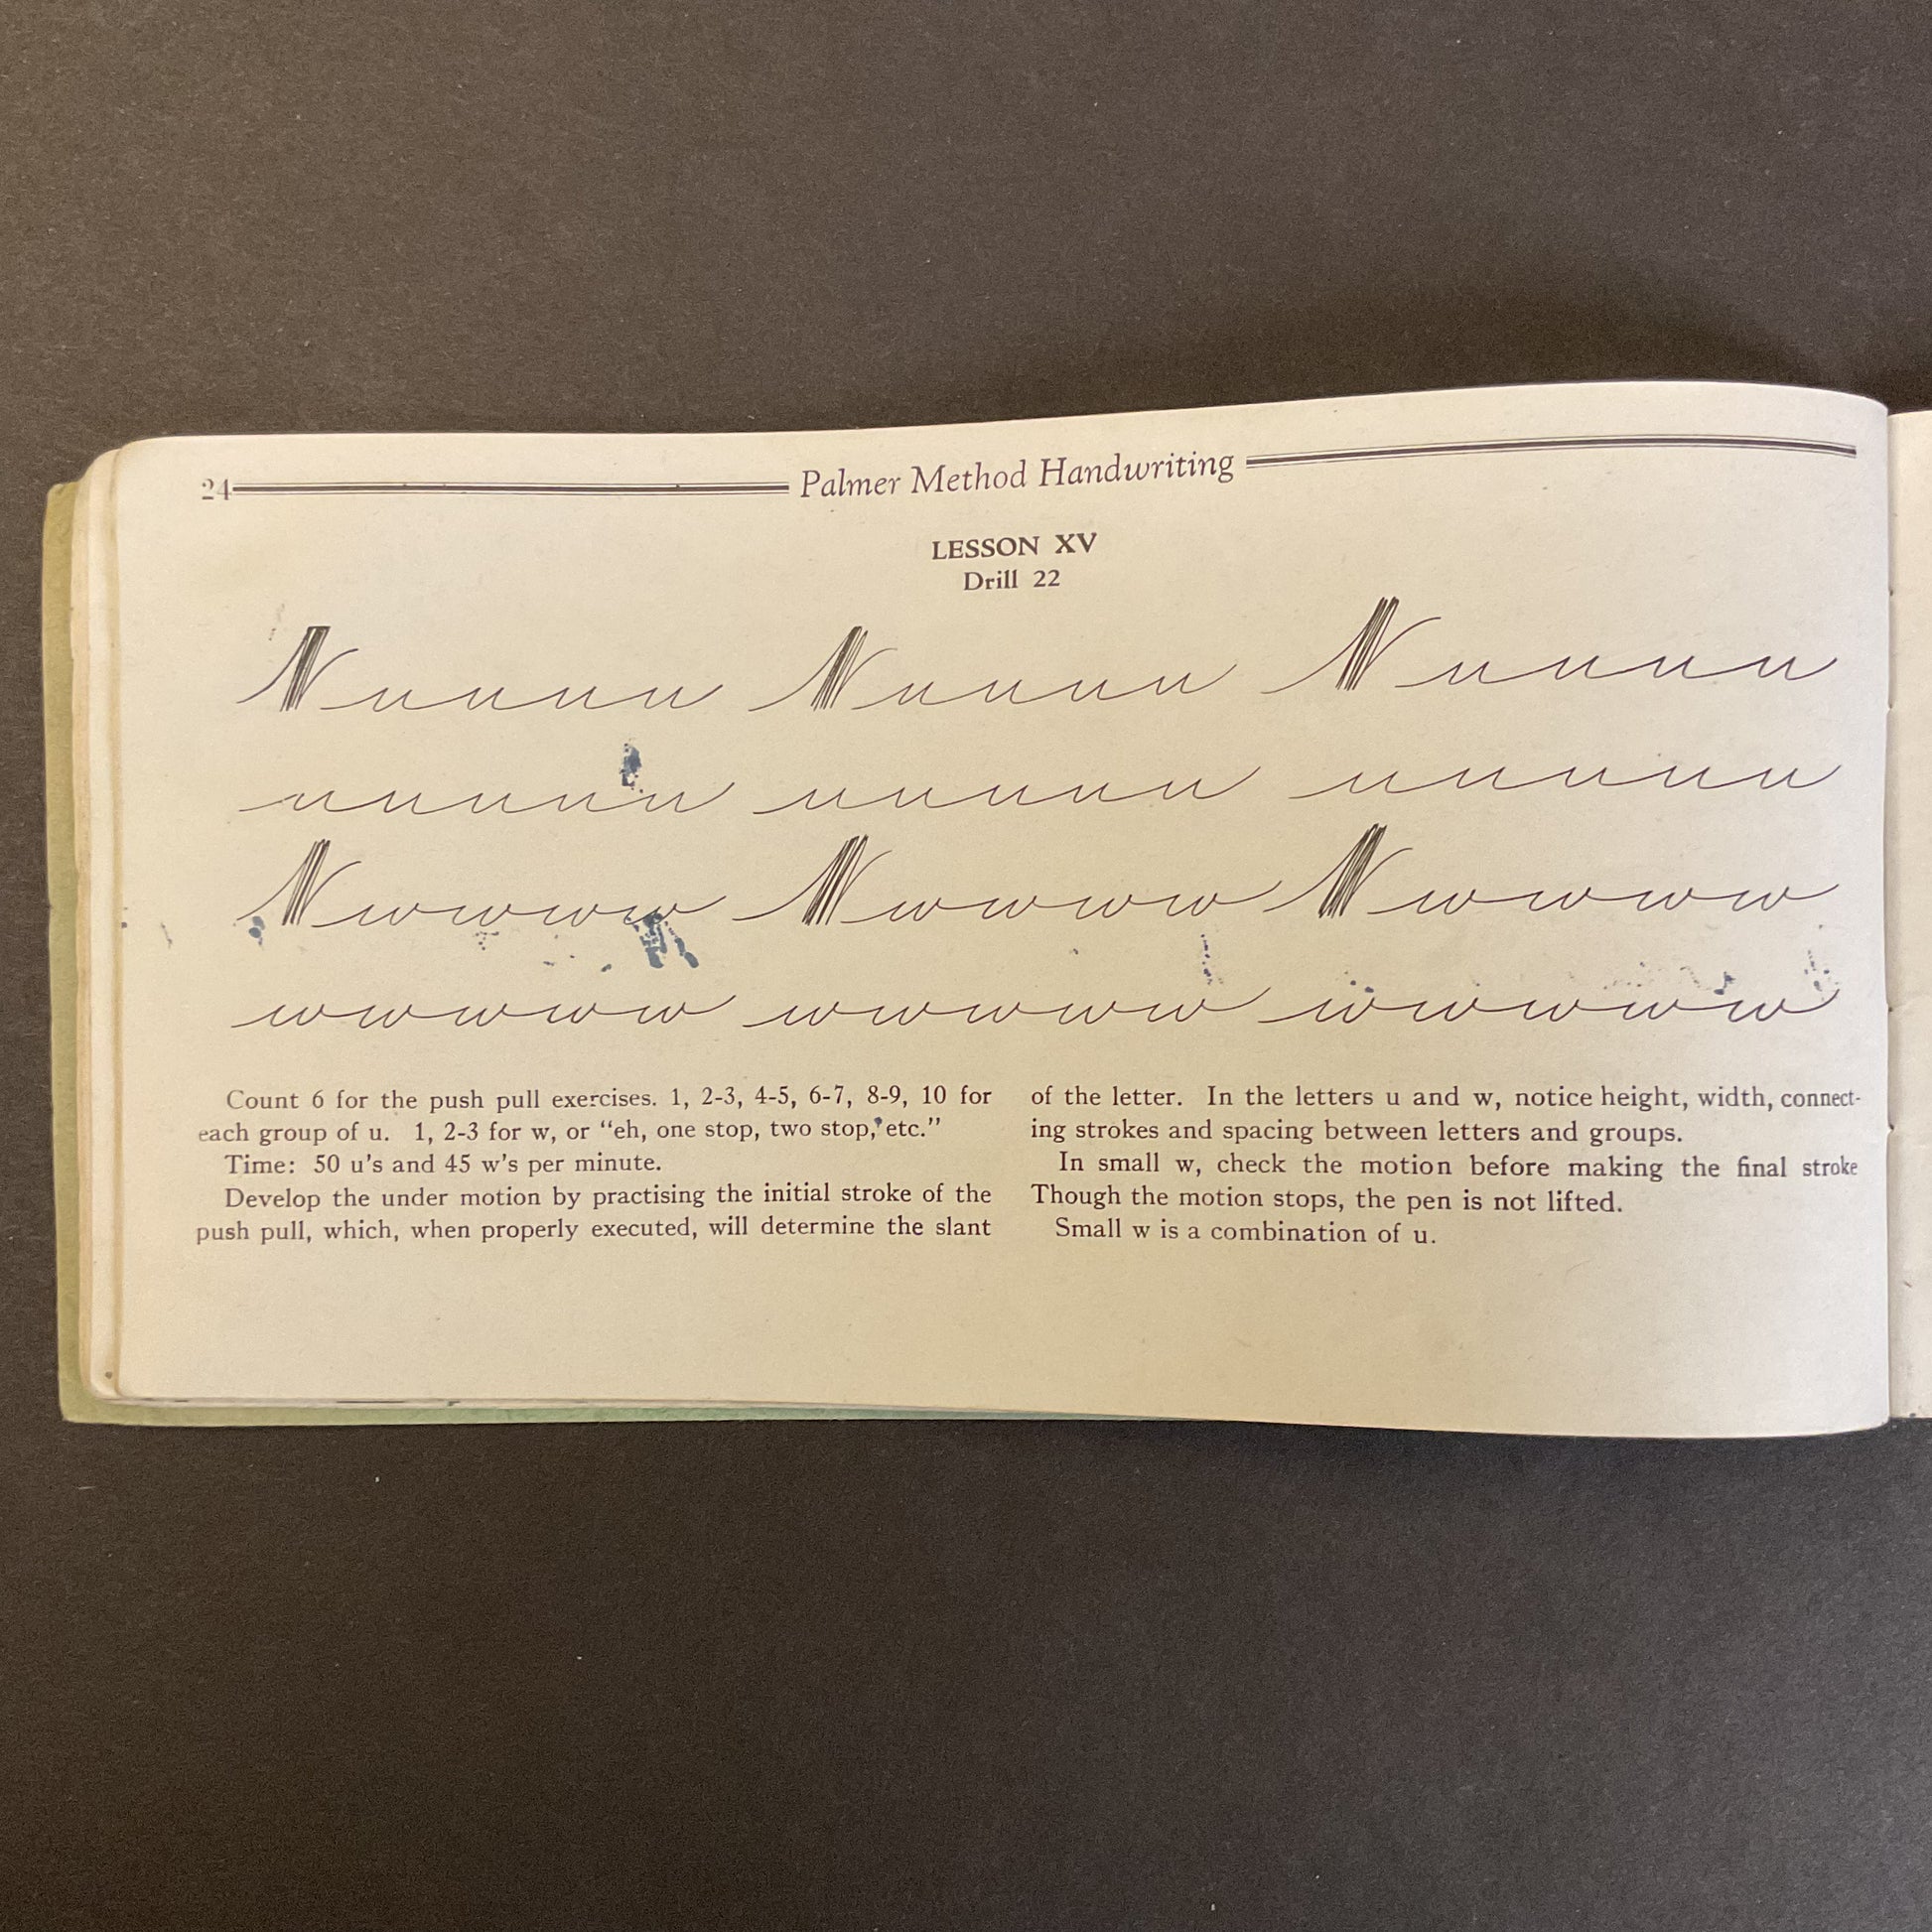 24 Palmer Method Handwriting
LESSON XV
Drill 22
uuuu uuuu uuuu
uuuuu uuuuu uuuuu
wwww wwww wwww
wwwww wwwww wwwww
Count 6 for the push pull exercises. 1, 2-3, 4-5, 6-7, 8-9, 10 for
each group of u. 1, 2-3 for w, or “eh, one stop, two stop, etc.”
Time: 50 u's and 45 w's per minute.
Develop the under motion by practising the initial stroke of the
push pull, which, when properly executed, will determine the slant
of the letter. In the letters u and w, notice height, width, connect-
ing strokes and spacing between letters and groups.
In small w, check the motion before making the final stroke
Though the motion stops, the pen is not lifted.
Small w is a combination of u.